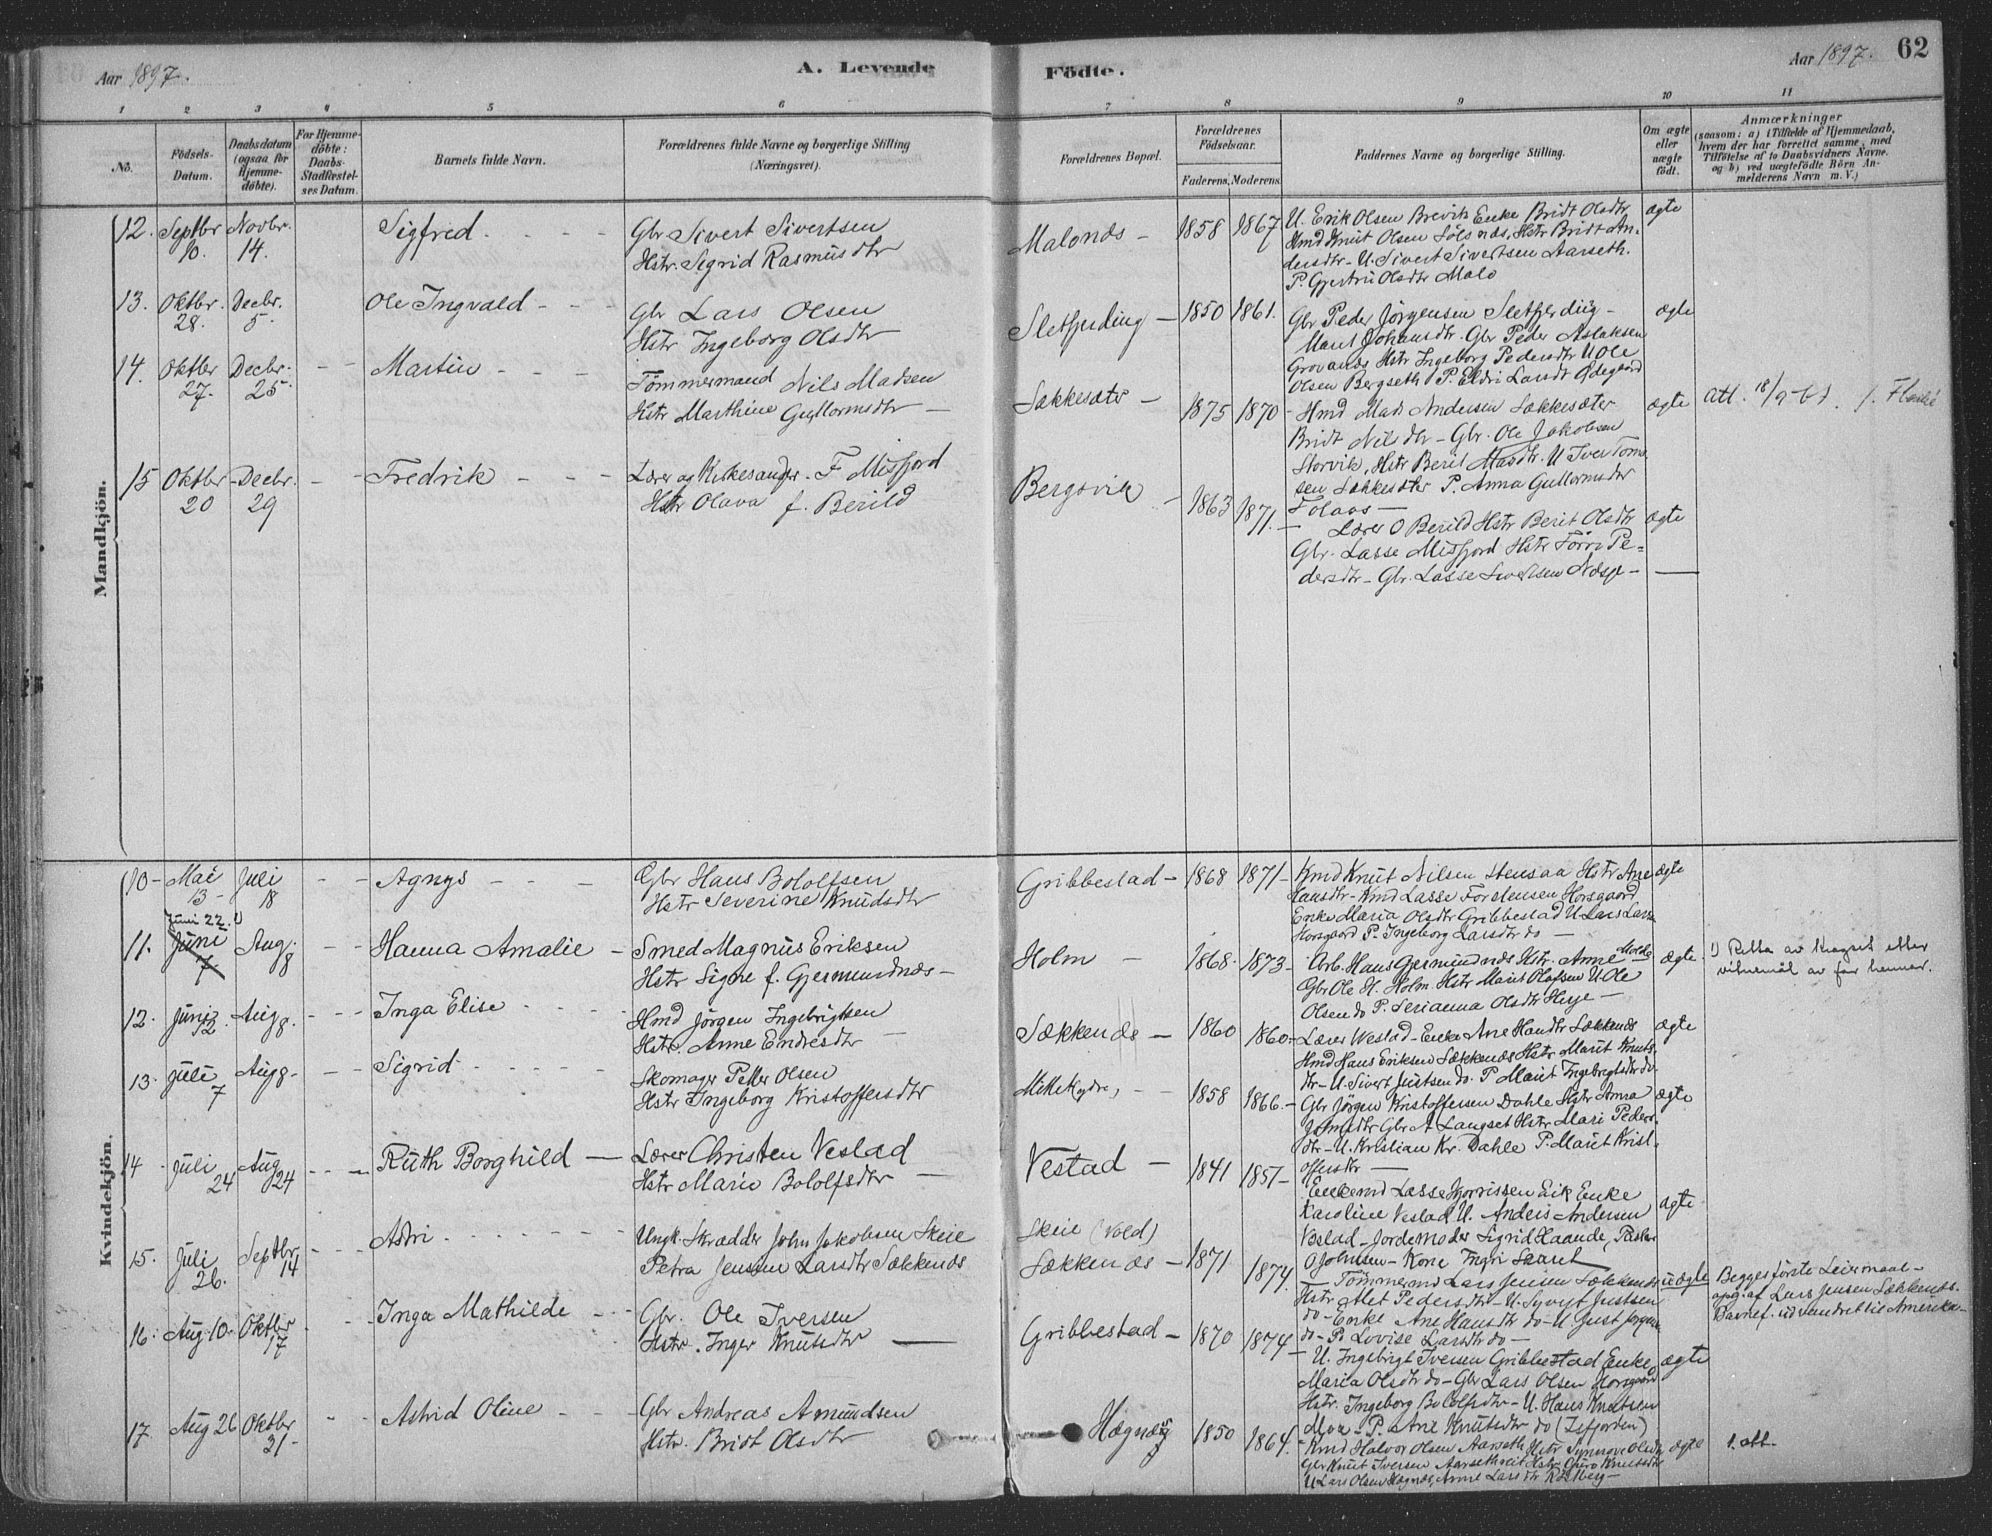 Aar 1897.
A. Levende Födte.
Aar 1897.
62
1 2 3 4 5 6 7 8 9 10 11
No.
Födsels-
Datum.
Daabsdatum
(ogsaa for
Hjemme-
döbte).
For Hjemme-
döbte:
Daabs-
Stadfæstel-
ses Datum.
Barnets fulde Navn.
Forældrenes fulde Navne og borgerlige Stilling
(Næringsvei).
Forældrenes Bopæl.
Forældrenes
Födselsaar.
Faderens. Moderens.
Faddernes Navne og borgerlige Stilling.
Om ægte
eller
uægte
födt.
Anmærkninger
(saasom: a) i Tilfælde af Hjemmedaab,
hvem der har forrettet samme, med
Tilföielse af to Daabsvidners Navne.
og b) ved uægtefödte Börn An-
melderens Navn m. V.)
Mandkjön.
12. Septbr 10. Novbr. 14.
Sigfred
Gbr Sivert Sivertsen
Hstr. Sigrid Rasmusdtr
Malonæs
1858 1867
U. Erik Olsen Brevik Enke Bridt Olsdtr
Hmd Knut Olsen Sölsnæs, Hstr Bridt An-
dersdtr - U. Sivert Sivertsen Aarseth.
P. Gjertru Olsdtr Malo
ægte
13. Oktbr. 28. Decbr. 5.
Ole Ingvald
Gbr Lars Olsen
Hstr Ingeborg Olsdtr
Sletfjerding
1850 1861.
Gbr Peder Jörgensen Sletfjerding -
Marit Johansdtr. Gbr Peder Aslaksen
Grovanæs Hstr Ingeborg Pedersdtr U Ole
Olsen Bergseth P. Eldri Larsdt Ödegaard
ægte
14. Oktbr 27. Decbr. 25
Martin
Tömmermand Nils Madsen
Hstr Marthine Gullormsdtr
Sækkesæter
1875 1870
Hmd Mads Andersen Sækkesæter
Bridt Nilsdtr - Gbr. Ole Jakobsen
Storvik, Hstr Berit Madsdtr. U Iver Tom-
sen Sækkesæter P. Anna Gullormsdtr
Folaas
ægte
Att. 18/9
15 Oktbr 20 Decbr. 29
Fredrik
Lærer og Kirkesanger. F Misfjord
Hstr Olava f. Berild
Bergsvik
1863 1871.
Lærer O Berild Hstr Berit Olsdtr
Gbr. Lasse Misfjord Hstr Pe=
dersdtr - Gbr. Lasse Sivertsen Næsje -
ægte
Kvindekjön.
10 Mai 13 Juli 18
Agnys
Gbr Hans Bololfsen
Hstr Severine Knudsdtr
Gribbestad
1868 1871
Kmd Knut Nilsen Stensaa Hstr Ane
Hansdtr - Kmd Lasse Torstensen Horsgaard
Enke Maria Olsdtr Gribbestad U Lars Lars
Horsgaard P. Ingeborg Larsdtr do -
ægte
Juni 22. 1)
11. Juni 7 Aug. 8
Hanna Amalie
Smed Magnus Eriksen
Hstr Signe f. Gjermundnæs
Holm
1868. 1873
Arb. Hans Gjermundnæs Hstr. Anne Molde
Gbr Ole H. Holm Hstr Marit Olafsen U Ole
Olsen do P. Serianna Olsdtr Heje -
ægte
1) Retta av kragset etter
vitnemål av far hennar.
12. Juni 12. Aug 8.
Inga Elise
Hmd Jörgen Ingebrigtsen
Hstr. Anne Endresdtr
Sækkenæs
1860 1860
Lærer Vestad - Enke Ane Hansdtr Sækkenæs
Hmd Hans Eriksen Sækkenæs Hstr Marit Knuts-
dtr - U. Sivert Justsen do. P Marit Ingebrigtsdtr do
ægte
13. Juli 7 Aug 8
Sigrid
Skomager Peder Olsen
Hstr Ingeborg Kristoffersdtr
1858 1866.
Gbr Jörgen Kristoffersen Dahle Hstr Anna
Johnsdtr Gbr A Langset Hstr Mari Peders-
dtr - U. Kristian Kr. Dahle P. Marit Krist-
offersdtr
ægte
14 Juli 24 Aug 24
Ruth Borghild
Lærer Christen Vestad
Hstr Marie Bololfsdtr
Vestad
1841 1857
Enkemd Lasse Eik Enke
Karoline Vestad U. Anders Andersen
Vestad - Jordemoder Sigrid Haande, Pastor
O Johnsen - Kone Ingri Skaret
ægte
15. Juli 26. Septbr 14
Astri
Ungk. Skrædder John Jakobsen Skeie
Petra Jensine Larsdtr Sækkenæs
Skeie (Vold)
Sækkenæs
1871 1874.
Tömmermd Lars Jensen Sækkenæs
Hstr Alet Pedersdtr - U. Syvert Justsen
do - Enke Ane Hansdtr do - U. Just Jörgen
do - P. Lovise Larsdtr do -
uægte
Begges förste Leiermaal -
opg. af Lars Jensen Sækkenæs.
Barnef. udvandret til Amerika
16. Aug 10. Oktbr 17
Inga Mathilde
Gbr. Ole Iversen
Hstr. Inger Knutsdtr
Gribbestad
1870 1874.
U. Ingebrigt Iversen Gribbestad Enke
Maria Olsdtr do - Gbr Lars Olsen Horsgaard
Hstr. Ingeborg Bololfsdtr - U. Hans Knutsen
Moa - P. Ane Knutsdtr do (Isfjorden)
ægte
17. Aug 26 Oktbr 31 -
Astrid Oline
Gbr Andreas Amundsen
Hstr. Bridt Olsdtr
Hægnæs
1850 1864.
Kmd Halvor Olsen Aarseth Hstr Synnöve Olsdtr
Gbr Knut Iversen Aarseth Hstr Guro Knutsdtr
U Lars Olsen Hægnæs, Anne Larsdtr
ægte
1. att.